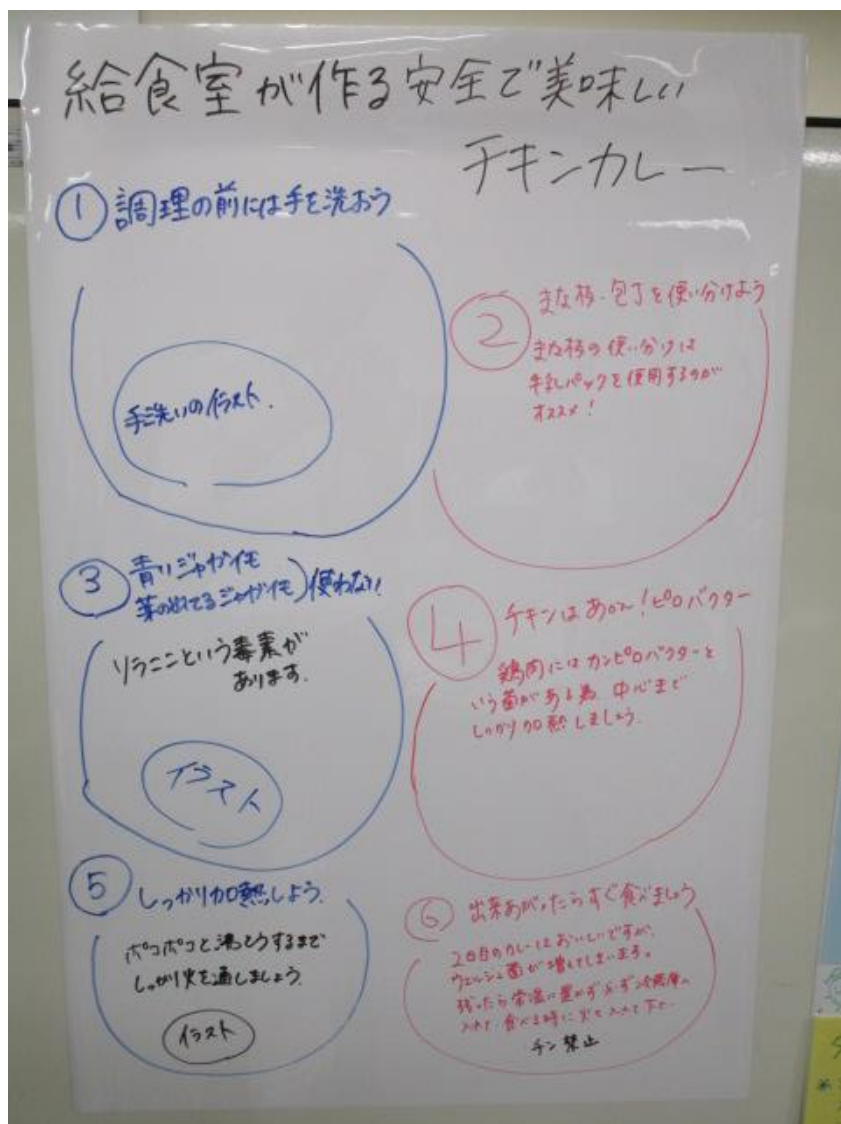 給食室が作る安全で美味しい
チキンカレー
① 調理の前には手を洗おう
手洗いのイラスト.
② まな板・包丁を使い分けよう
まな板の使い分けは
牛乳パックを使用するのが
オススメ!
③ 青いジャガイモ
芽の出てるジャガイモ) 使わない!
ソラニンという毒素が
あります.
イラスト
④ チキンはあかん!ピロバクター
鶏肉にはカンピロバクターと
いう菌がある為、中心まで
しっかり加熱しましょう.
⑤ しっかり加熱しよう.
ポコポコと沸とうするまで
しっかり火を通しましょう.
イラスト
⑥ 出来あがったらすぐ食べましょう
2日目のカレーはおいしいですが、
ウェルシュ菌が増えてしまいます。
残ったら常温に置かず必ず冷蔵庫へ
入れて、食べる時に火を入れて下さい.
チン禁止